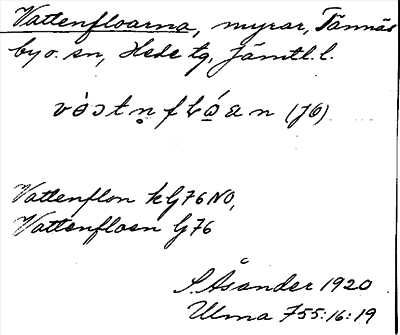 Vattenfloarna, myrar, Tännäs
by o. sn, Hede tg, Jämtl. l.
(J6)
Vattenflon kG76NO,
Vattenfloen G76
S. Åsander 1920
Ulma 755:16:19